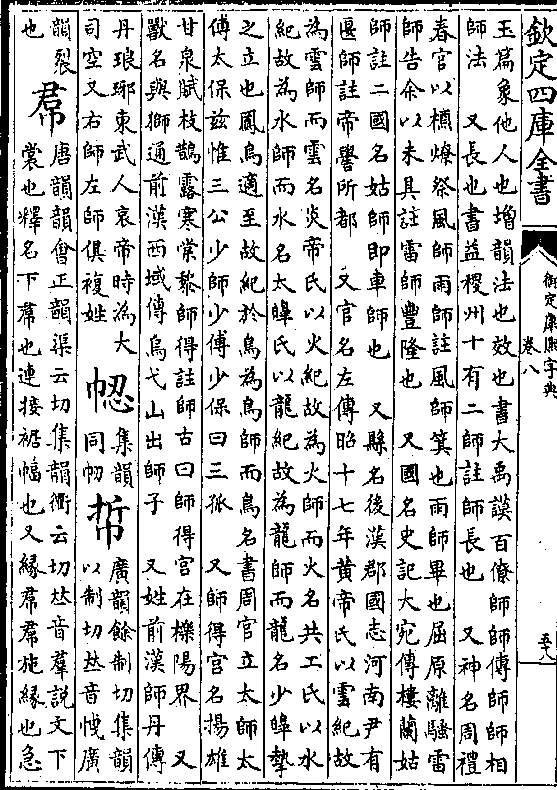 欽定四庫全書
御定康熙字典
卷八
玉篇象他人也增韻法也效也書大禹謨百僚師師傳師師相
師法 又長也書益稷州十有二師註師長也 又神名周禮
春官以槱燎祭風師雨師註風師箕也雨師畢也屈原離騷雷
師告余以未具註雷師豐隆也 又國名史記大宛傳樓蘭姑
師註二國名姑師即車師也 又縣名後漢郡國志河南尹有
偃師註帝嚳所都 又官名左傳昭十七年黃帝氏以雲紀故
為雲師而雲名炎帝氏以火紀故為火師而火名共工氏以水
紀故為水師而水名太皥氏以龍紀故為龍師而龍名少皥摯
之立也鳳鳥適至故紀於鳥為鳥師而鳥名書周官立太師太
傅太保兹惟三公少師少傅少保曰三孤 又師得宫名揚雄
甘泉賦枝鵲露寒棠黎師得註師古曰師得宫在櫟陽界 又
獸名與獅通前漢西域傳烏弋山出師子 又姓前漢師丹傳
丹琅琊東武人哀帝時為大
司空又右師左師俱複姓
集韻
同
廣韻餘制切集韻
以制切𠀤音 廣
韻裂
也
帬
唐韻韻會正韻渠云切集韻衢云切𠀤音羣說文下
裳也釋名下帬也連接裾幅也又緣帬帬施緣也急